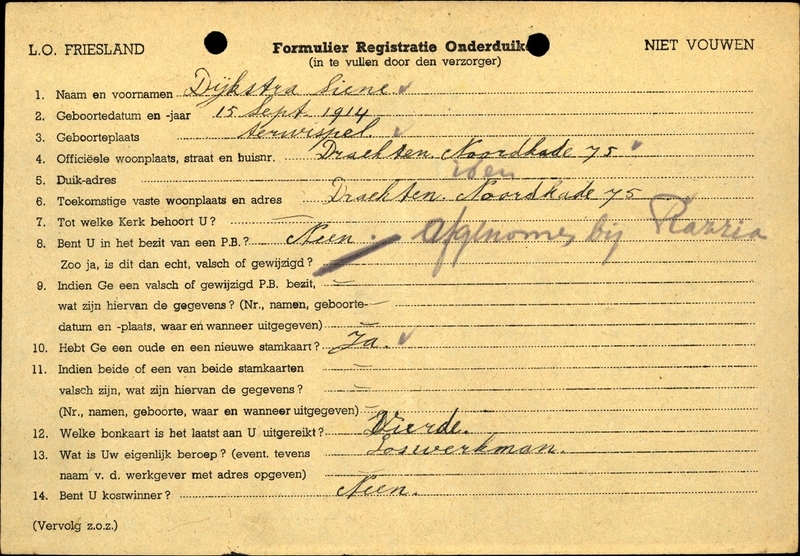 L.O. FRIESLAND
Formulier Registratie Onderduik
NIET VOUWEN
(in te vullen door den verzorger)
1. Naam en voornamen Dijkstra Siene
2. Geboortedatum en -jaar 15 Sept. 1914
3. Geboorteplaats terwispel
4. Officiëele woonplaats, straat en huisnr. Drachten. Noordkade 75
5. Duik-adres idem
6. Toekomstige vaste woonplaats en adres Drachten. Noordkade 75
7. Tot welke Kerk behoort U? —
8. Bent U in het bezit van een P.B.? Neen. Afgenomen bij Razzia
Zoo ja, is dit dan echt, valsch of gewijzigd?
9. Indien Ge een valsch of gewijzigd P.B. bezit, —
wat zijn hiervan de gegevens? (Nr., namen, geboorte- —
datum en -plaats, waar en wanneer uitgegeven) —
10. Hebt Ge een oude en een nieuwe stamkaart? Ja.
11. Indien beide of een van beide stamkaarten —
valsch zijn, wat zijn hiervan de gegevens? —
(Nr., namen, geboorte, waar en wanneer uitgegeven) —
12. Welke bonkaart is het laatst aan U uitgereikt? Vierde.
13. Wat is Uw eigenlijk beroep? (event. tevens Loswerkman.
naam v. d. werkgever met adres opgeven) —
14. Bent U kostwinner? Neen.
(Vervolg z.o.z.)